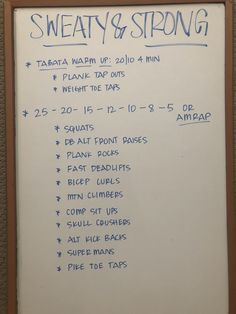 SWEATY & STRONG
* TABATA WARM UP: 20/10 4 MIN
* PLANK TAP OUTS
* WEIGHT TOE TAPS
* 25 - 20 - 15 - 12 - 10 - 8 - 5 OR
AMRAP
* SQUATS
* DB ALT FRONT RAISES
* PLANK ROCKS
* FAST DEADLIFTS
* BICEP CURLS
* MTN CLIMBERS
* COMP SIT UPS
* SKULL CRUSHERS
* ALT KICK BACKS
* SUPERMANS
* PIKE TOE TAPS